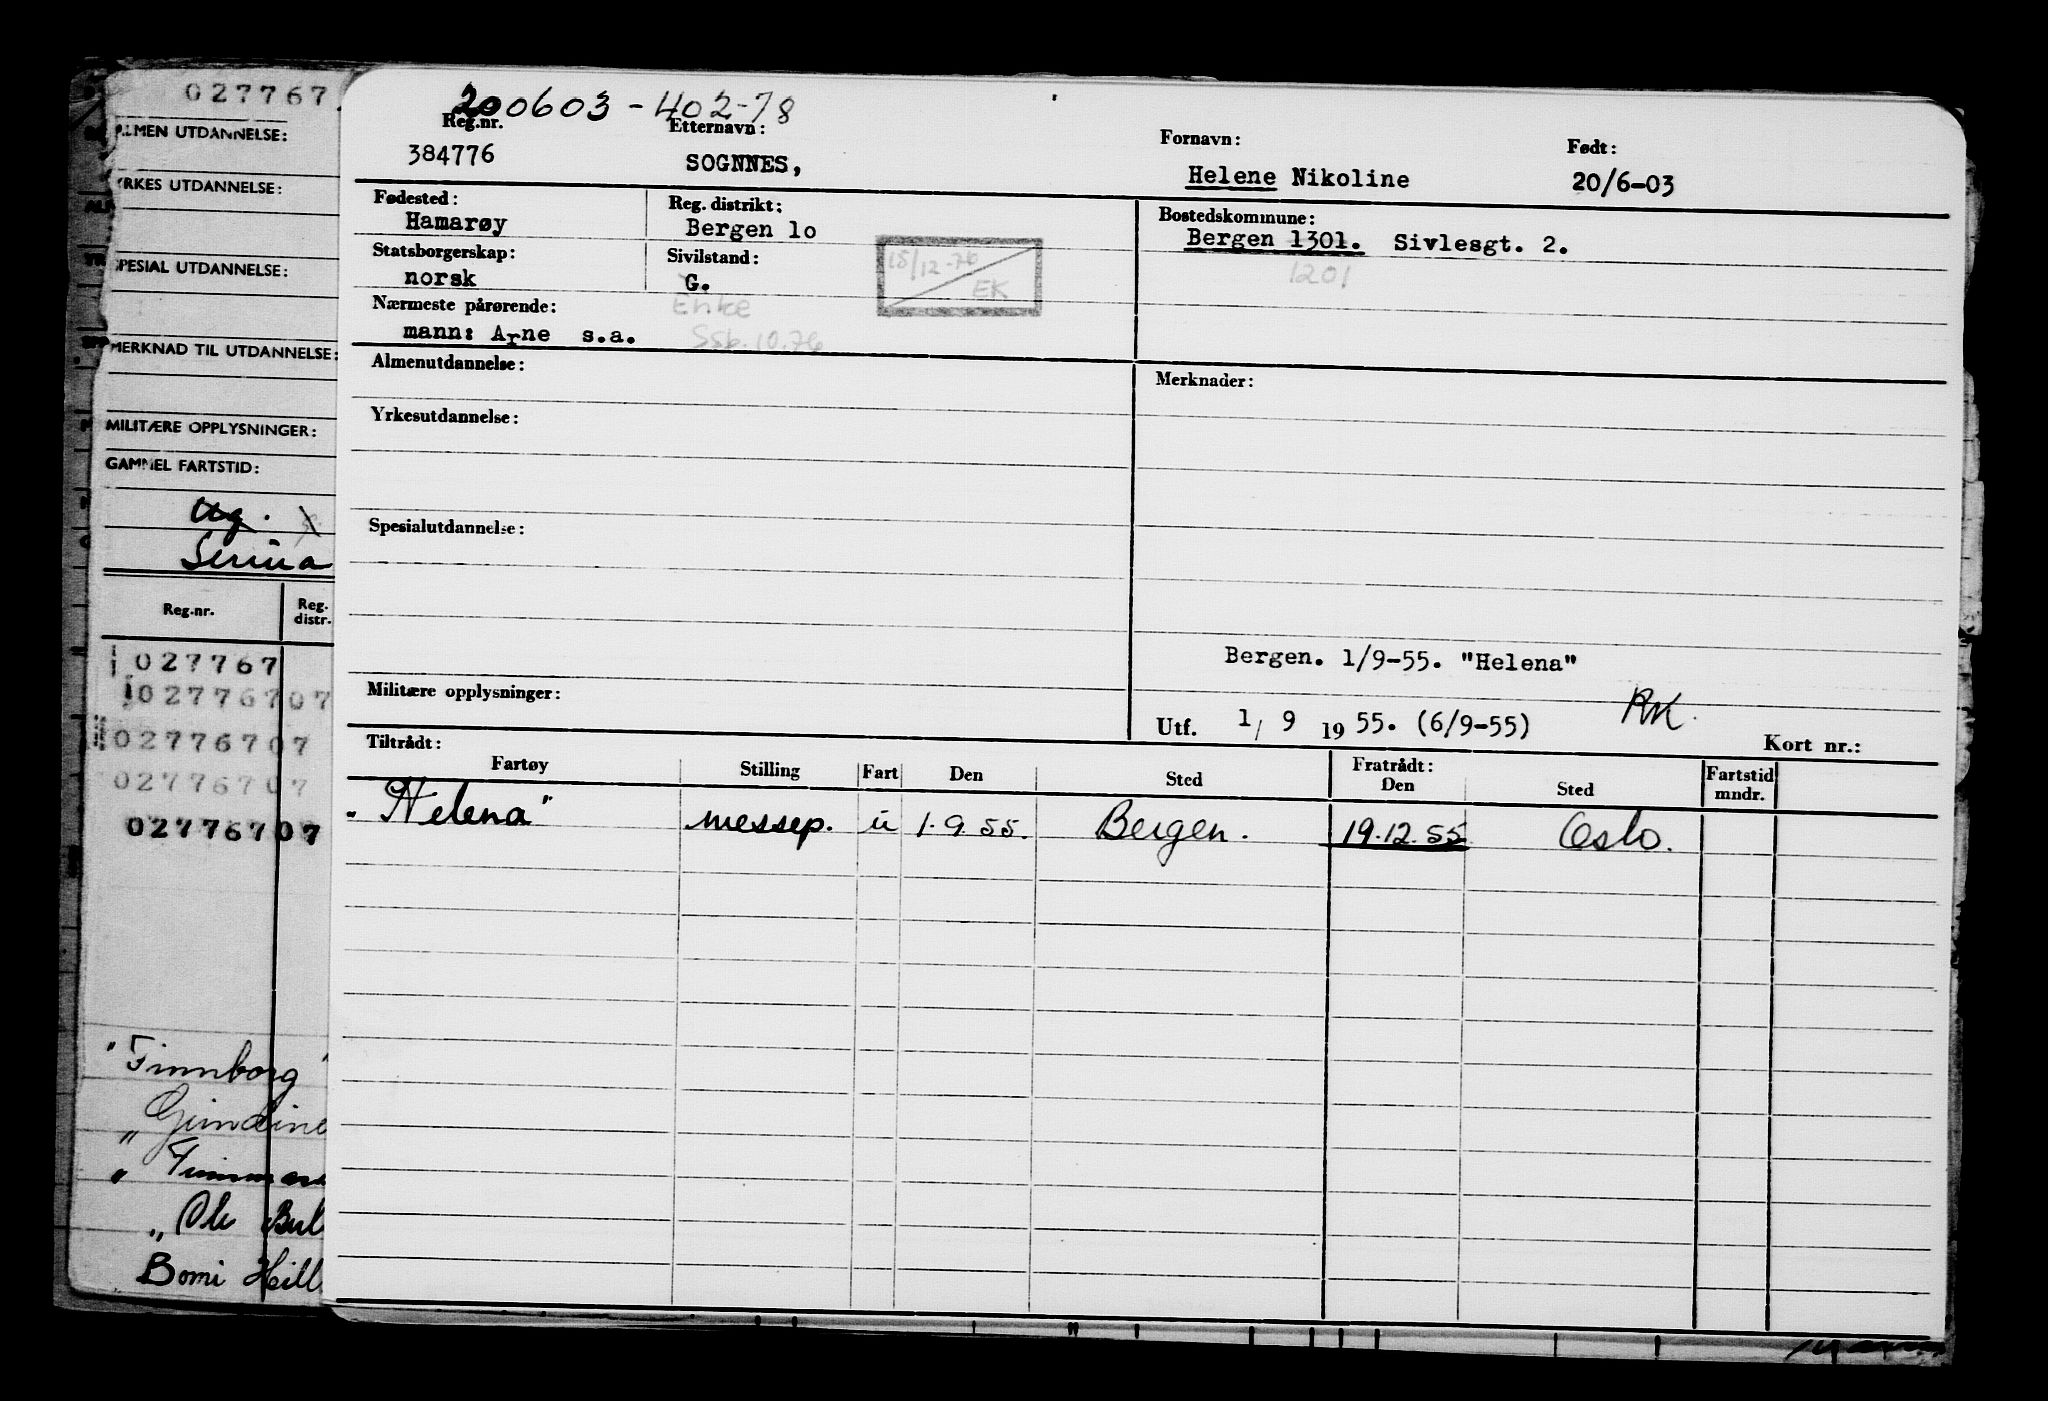 027767
ALMEN UTDANNELSE:
YRKES UTDANNELSE:
SPESIAL UTDANNELSE:
MERKNAD TIL UTDANNELSE:
MILITÆRE OPPLYSNINGER:
GAMMEL FARTSTID:
Ug.
Reg.nr. Reg. distr.
027767
02776707
02776707
02776707
02776707
"Finnborg"
"
"
" Ole Bul
Bomi Hill
200603-402-78
Reg.nr. Etternavn: Fornavn: Født:
384776 SOGNNES, Helene Nikoline 20/6-03
Fødested: Reg. distrikt: Bostedskommune:
Hamarøy Bergen lo Bergen 1301. Sivlesgt. 2.
1201
Statsborgerskap: Sivilstand:
norsk G.
Enke
15/12-76 EK
Nærmeste pårørende:
mann: Arne s.a. Ssb. 10.76
Almenutdannelse: Merknader:
Yrkesutdannelse:
Spesialutdannelse:
Bergen. 1/9-55. "Helena"
Militære opplysninger:
Utf. 1/ 9 1955. (6/9-55) RK. Kort nr.:
Tiltrådt: Fratrådt:
Fartøy Stilling Fart Den Sted Den Sted Fartstid mndr.
"Helena" messep. u 1.9.55. Bergen. 19.12.55 Oslo.